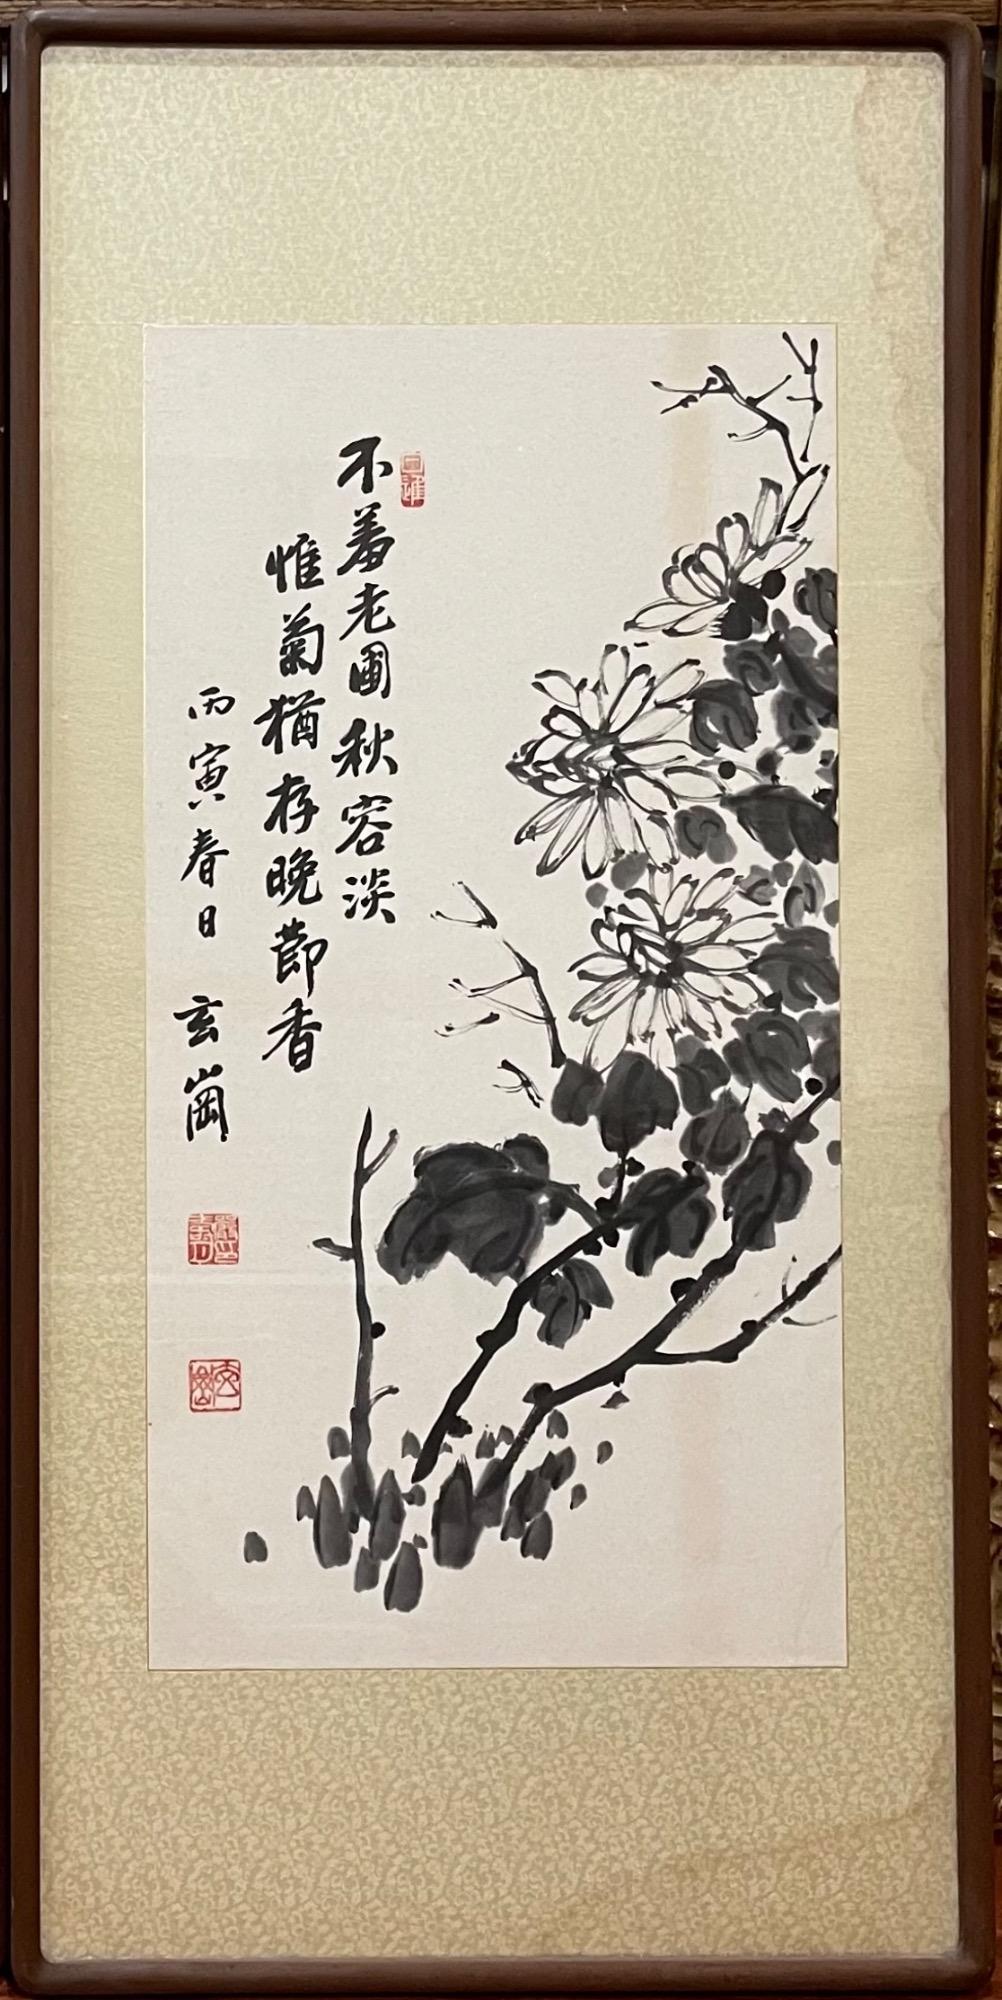 不羞老圃秋容淡
惟菊猶存晚節香
丙寅春日 玄崗